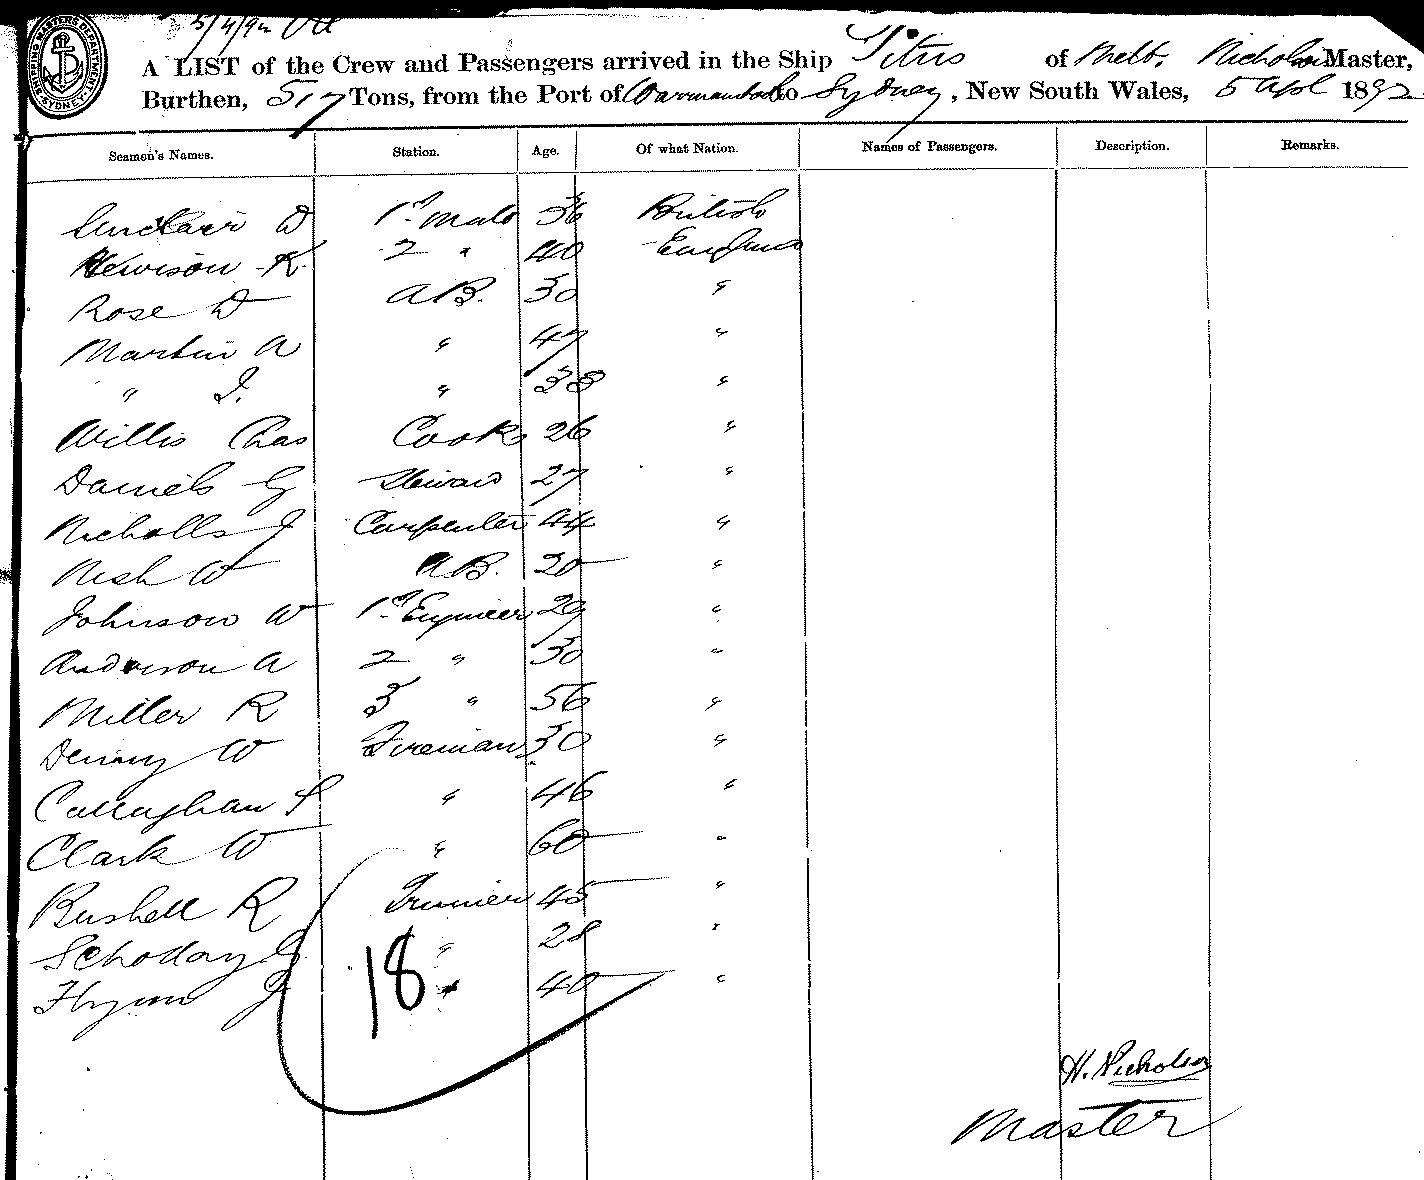 5/4/92
SHIPPING MASTERS DEPARTMENT SYDNEY
A LIST of the Crew and Passengers arrived in the Ship Titus of Melb. Nicholson Master,
Burthen, 517 Tons, from the Port of to Sydney, New South Wales, 5 Apl 1892
Seamen's Names. Station. Age. Of what Nation. Names of Passengers. Description. Remarks.
Sinclair D 1st Mate 36 British
Hewison R 2 " 40 England
Rose D A.B. 30 "
Martin A " 47 "
" J. " 38 "
Willis Chas Cook 26 "
Daniels G Steward 27 "
Nicholls J Carpenter 44 "
Nish W A.B. 20 "
Johnson W 1st Engineer 29 "
Anderson A 2 " 30 "
Miller R 3 " 56 "
Denny W Fireman 30 "
Callaghan S " 46 "
Clark W " 60 "
Bushell R Trimmer 45 "
Schoday G " 28 "
Flynn J " 40 "
18
H. Nicholson
Master